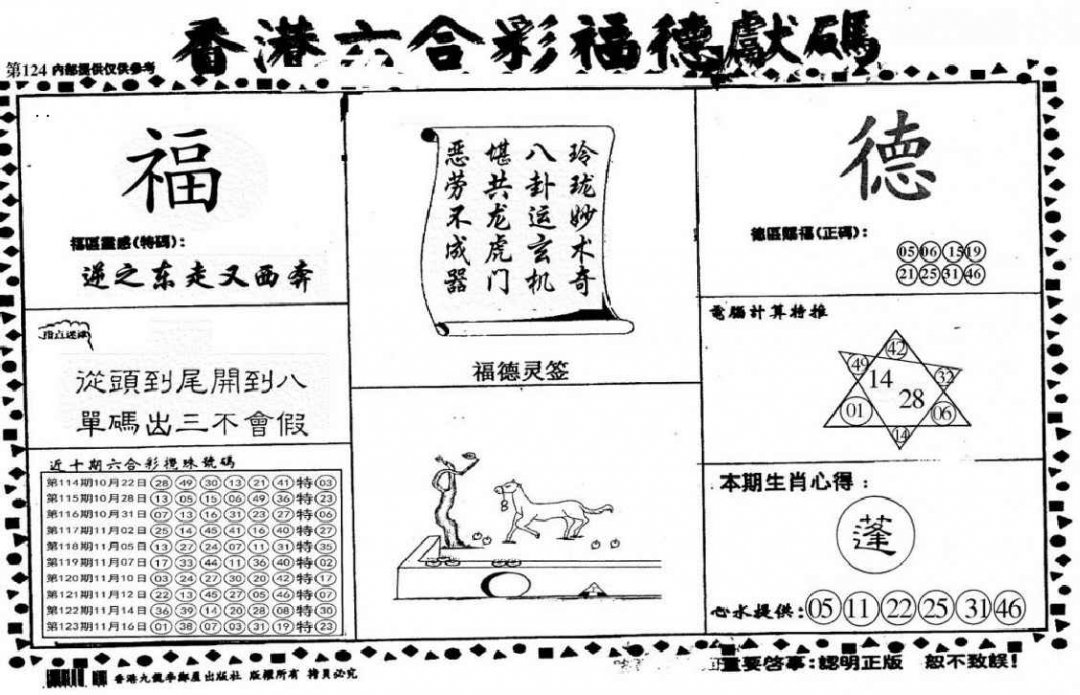 香港六合彩福德獻碼
第124 內部提供仅供參考
福
福區靈感(特碼):
逆之东走又西奔
指点迷津
從頭到尾開到八
單碼出三不會假
近十期六合彩攪珠號碼
第114期10月22日 28 49 30 13 21 41 特 03
第115期10月28日 13 05 15 06 49 36 特 23
第116期10月31日 07 13 16 31 23 27 特 06
第117期11月02日 25 14 45 41 16 40 特 27
第118期11月05日 13 27 24 07 11 31 特 35
第119期11月07日 17 33 44 11 36 40 特 02
第120期11月10日 03 24 27 30 20 42 特 17
第121期11月12日 22 13 45 27 05 46 特 07
第122期11月14日 36 39 14 20 28 08 特 30
第123期11月16日 01 38 07 03 31 19 特 23
玲珑妙术奇
八卦运玄机
堪共龙虎门
恶劳不成器
福德灵签
德
德區賜福(正碼):
05 06 15 19
21 25 31 46
電腦計算特推
42
49 32
14 28
01 06
14
本期生肖心得:
蓬
心水提供: 05 11 22 25 31 46
香港九龍李鄭屋出版社 版權所有 拷貝必究
重要啓事:認明正版 恕不致誤!